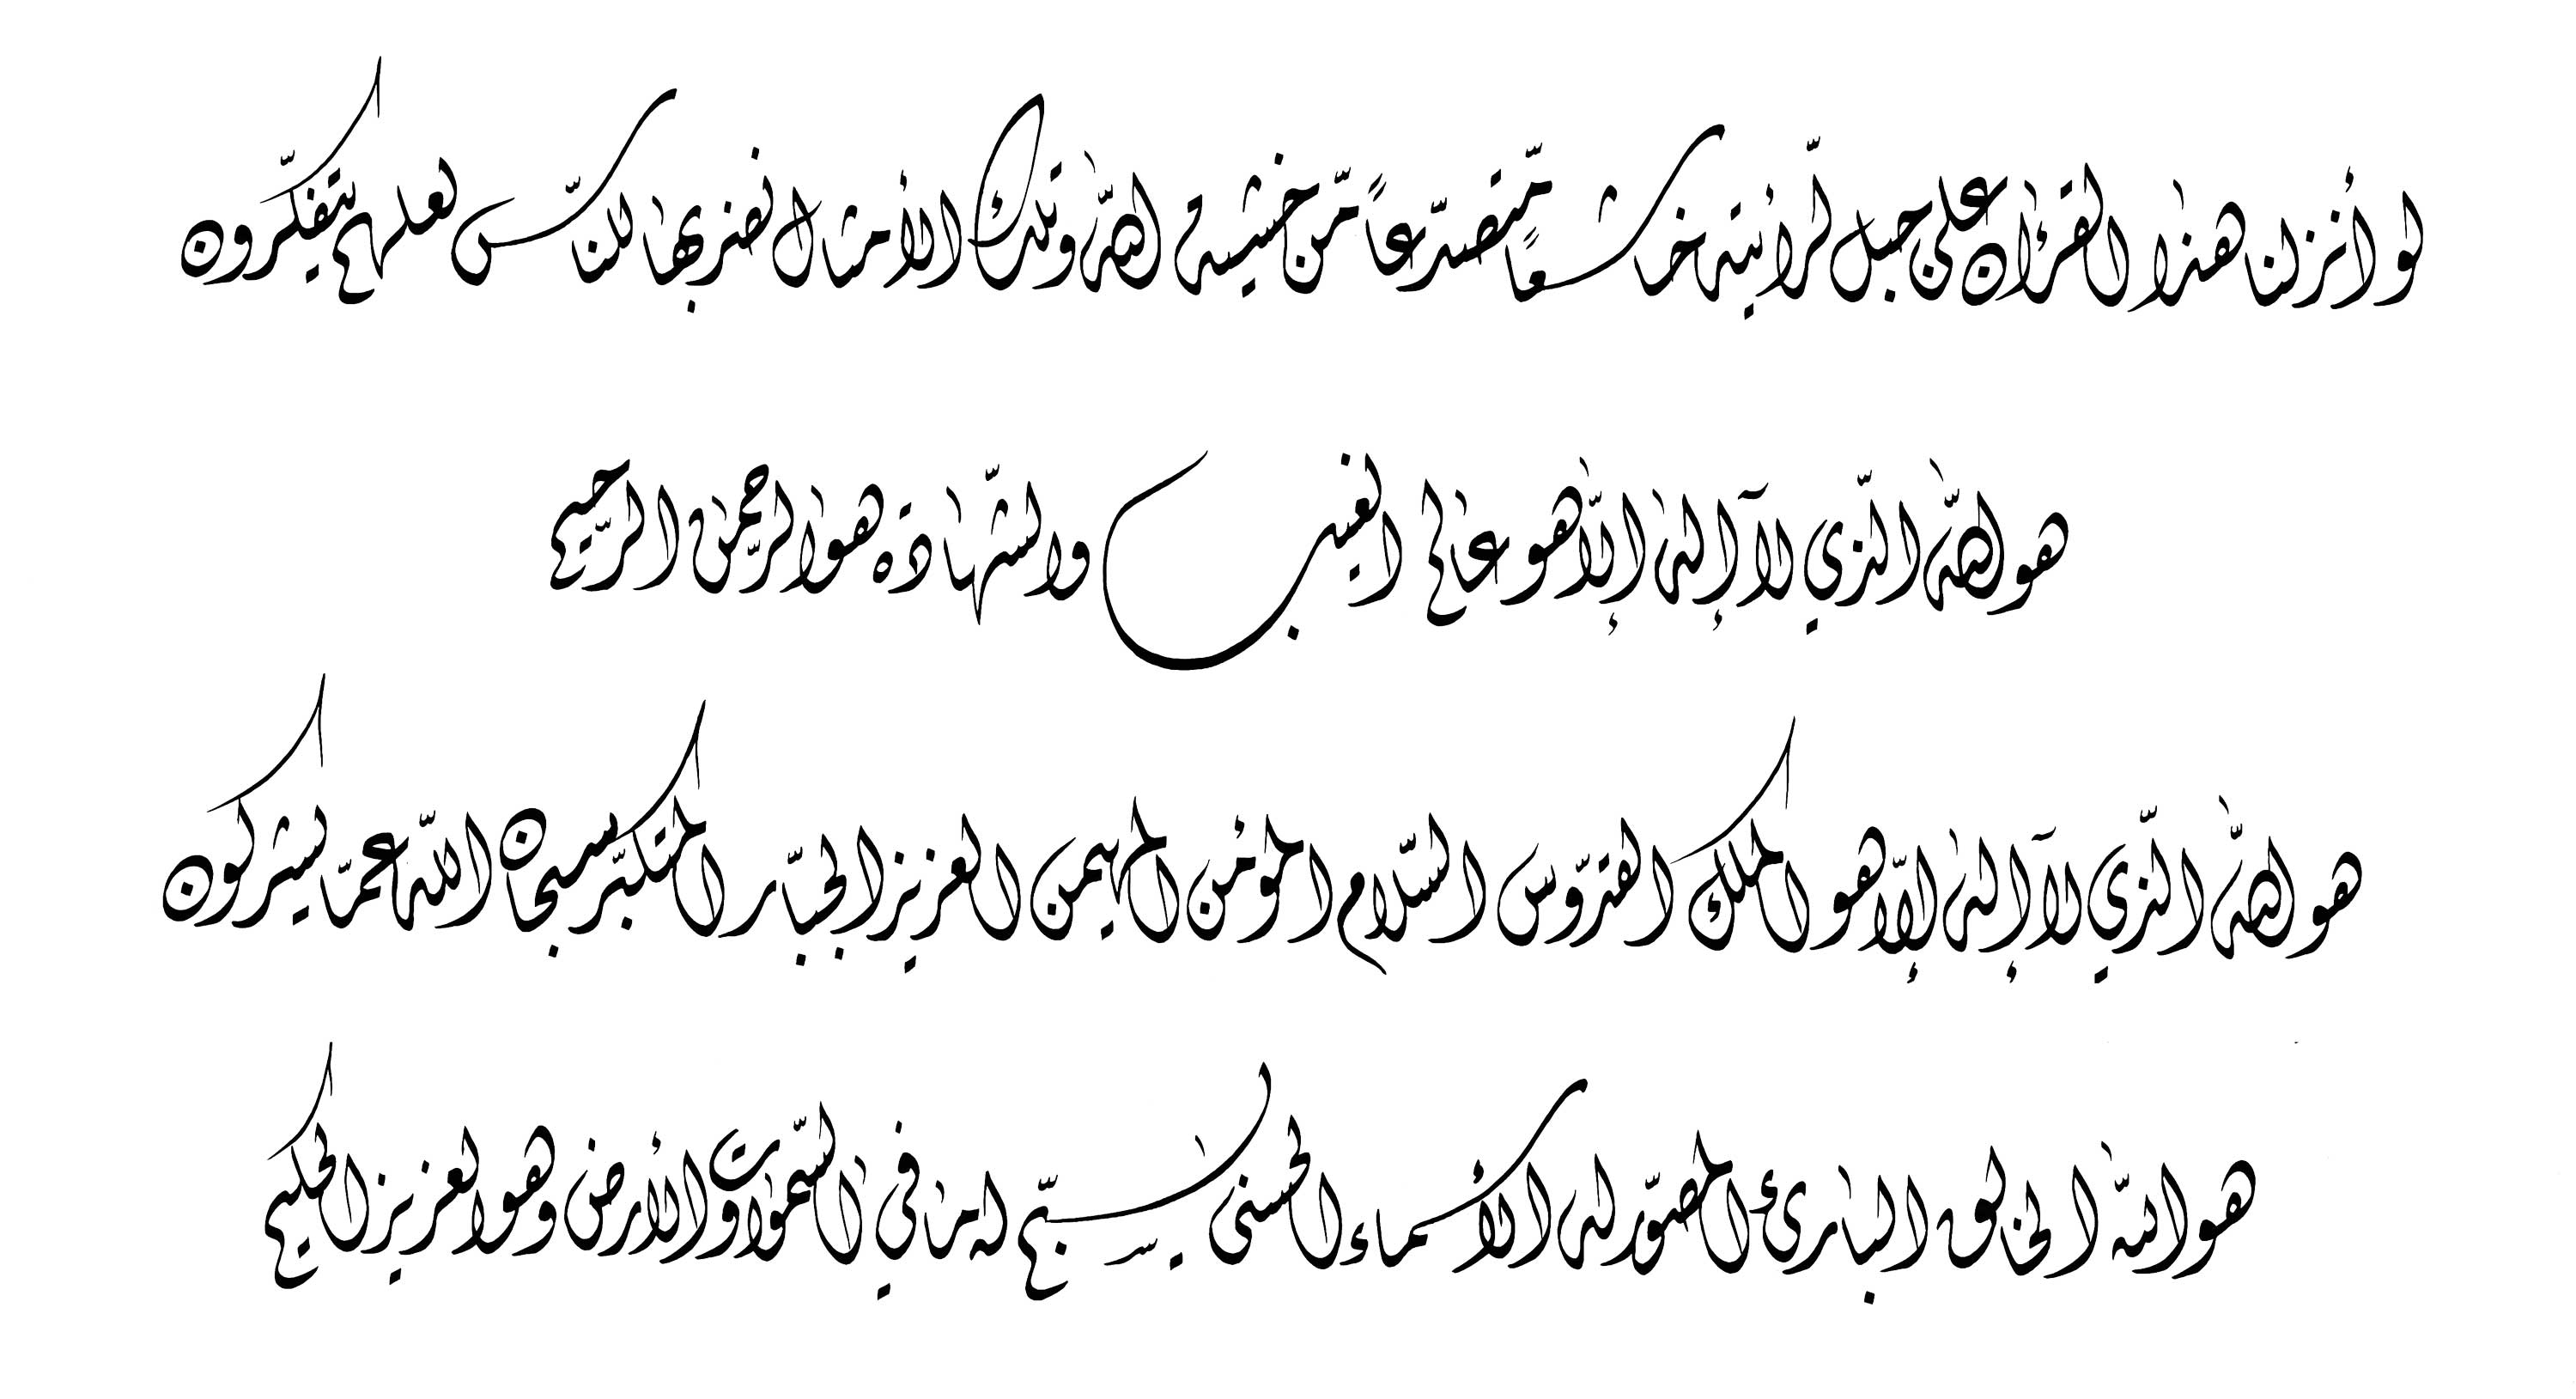 لو أنزلنا هٰذا القرءٰان على جبل لّرأيته خاشعًا مّتصدّعاً مّن خشية اللّٰه وتلك الأمثال نضربها للنّاس لعلهم يتفكّرون
هو اللّٰه الّذي لآ إلٰه إلّا هو عالم الغيب والشّهادة هو الرّحمٰن الرّحيم
هو اللّٰه الّذي لآ إلٰه إلّا هو الملك القدّوس السّلام المؤمن المهيمن العزيز الجبّار المتكبّر سبحان اللّٰه عمّا يشركون
هو اللّٰه الخالق البارئ المصوّر له الأسماء الحسنى يسبّح له ما في السّمٰوٰت والأرض وهو العزيز الحكيم